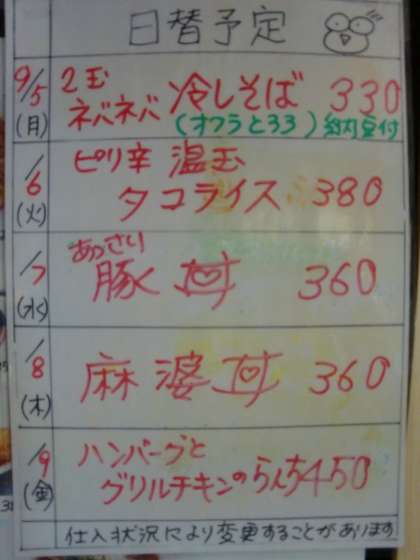 日替予定
9/5 2玉
(月) ネバネバ 冷しそば 330
(オクラとろろ) 納豆付
/6 ピリ辛 温玉
(火) タコライス 380
/7 あっさり
(水) 豚丼 360
/8
(木) 麻婆丼 360
/9 ハンバーグと
(金) グリルチキンのらんち450
仕入状況により変更することがあります